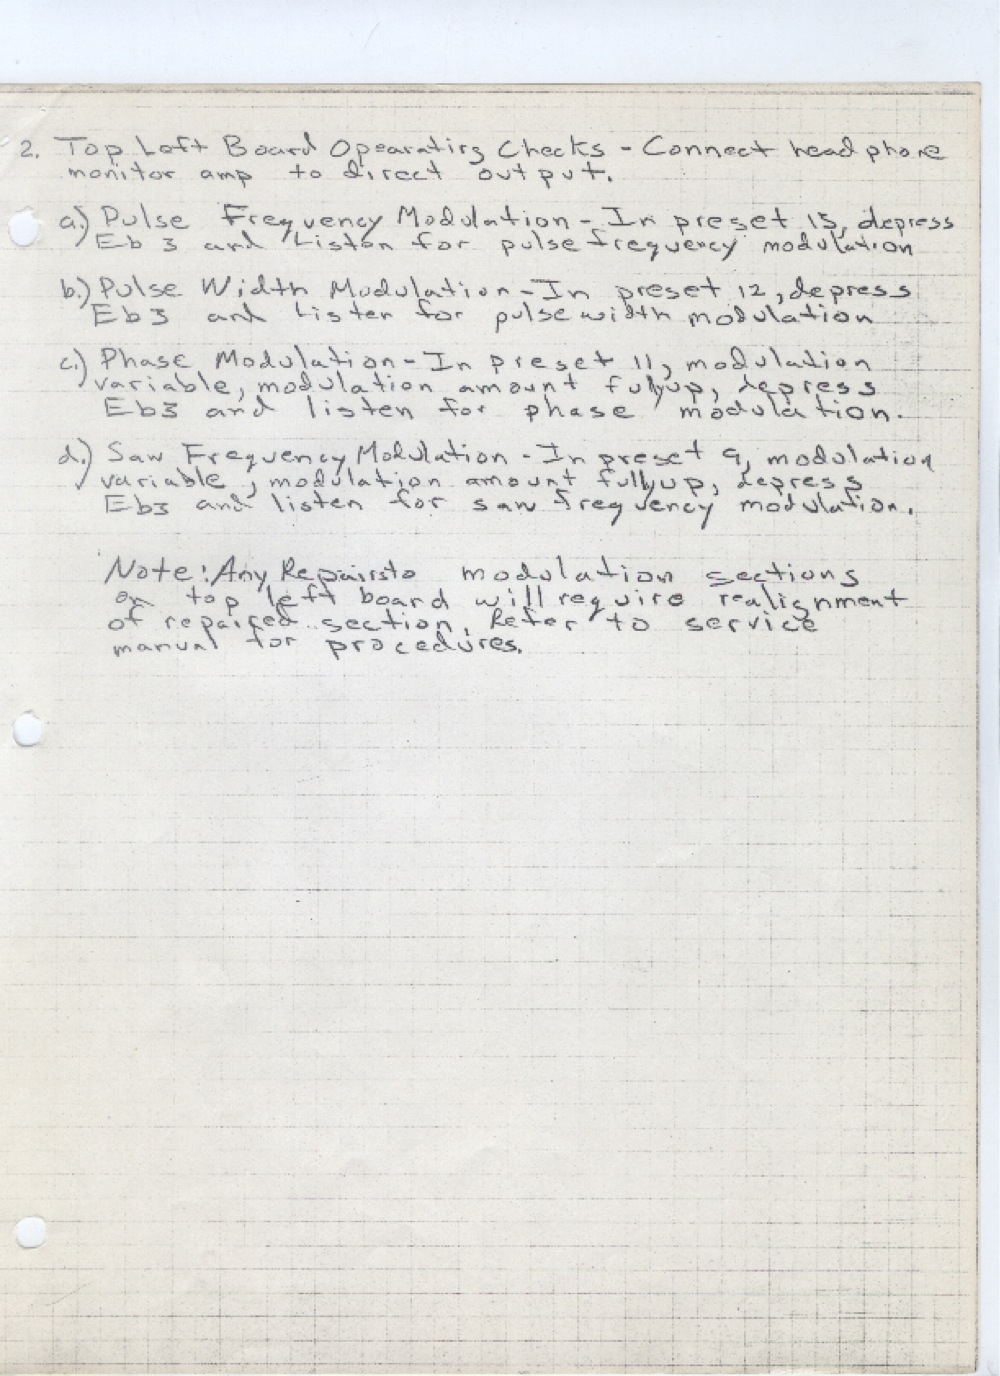 2. Top Left Board Opearating Checks - Connect head phone
monitor amp to direct output.
a.) Pulse Frequency Modulation - In preset 15, depress
Eb 3 and Listen for pulse frequency modulation
b.) Pulse Width Modulation - In preset 12, depress
Eb3 and Listen for pulse width modulation
c.) Phase Modulation - In preset 11, modulation
variable, modulation amount fully up, depress
Eb3 and listen for phase modulation.
d.) Saw Frequency Modulation - In preset 9, modulation
variable, modulation amount fully up, depress
Eb3 and listen for saw frequency modulation.
Note: Any Repairs to modulation sections
on top left board will require realignment
of repaired section. Refer to service
manual for procedures.